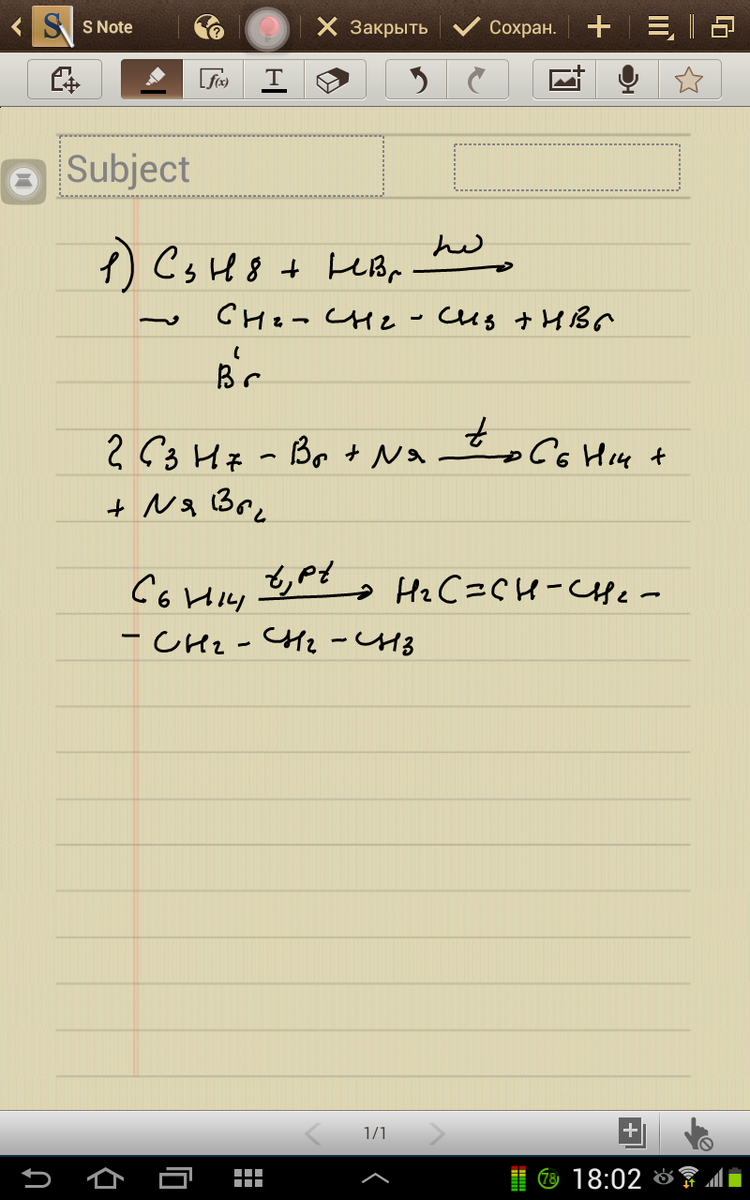 S Note
Закрыть
Сохран.
f(x)
T
Subject
1) C3H8 + HBr hν→
→ CH2 - CH2 - CH3 + HBr
Br
2 C3H7 - Br + Na t→ C6H14 +
+ NaBr2
C6H14 t, Pt→ H2C=CH-CH2-
- CH2 - CH2 - CH3
1/1
78
18:02